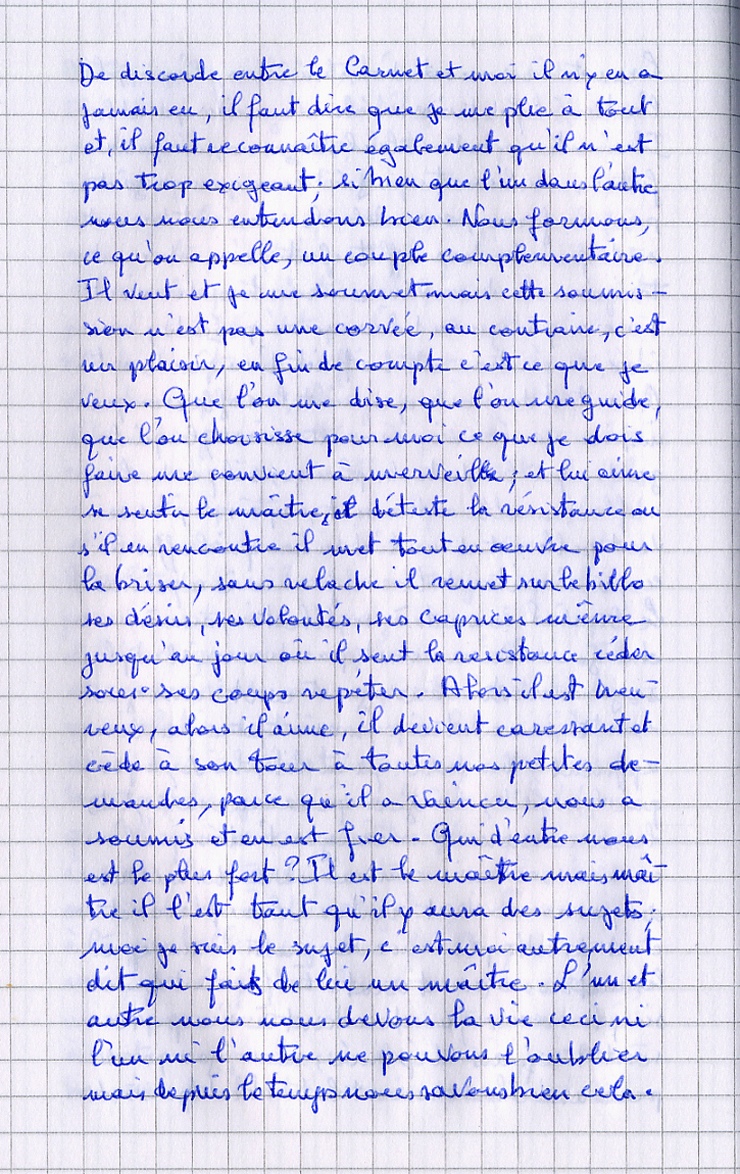 De discorde entre le Carnet et moi il n'y en a
jamais eu, il faut dire que je me plie à tout
et, il faut reconnaître également qu'il n'est
pas trop exigeant; si bien que l'un dans l'autre
nous nous entendons bien. Nous formons,
ce qu'on appelle, un couple complementaire.
Il veut et je me soumet mais cette soumis-
sion n'est pas une corvée, au contraire, c'est
un plaisir, en fin de compte c'est ce que je
veux. Que l'on me dise, que l'on me guide,
que l'on choisisse pour moi ce que je dois
faire me convient à merveille; et lui aime
se sentir le maître, il déteste la résistance ou
s'il en rencontre il met tout en oeuvre pour
la briser, sans relache il remet sur le billo
ses désirs, ses volontés, ses caprices même
jusqu'au jour où il sent la resistance céder
sous ses coups repéter. Alors il est heu-
reux, alors il aime, il devient caressant et
cède à son tour à toutes nos petites de-
mandes, parce qu'il a vaincu, nous a
soumis et en est fier. Qui d'entre nous
est le plus fort? Il est le maître mais maî
tre il l'est tant qu'il y aura des sujets;
moi je suis le sujet, c'est moi autrement
dit qui fais de lui un maître. L'un et
autre nous nous devons la vie ceci ni
l'un ni l'autre ne pouvons l'oublier
mais depuis le temps nous savons bien cela.